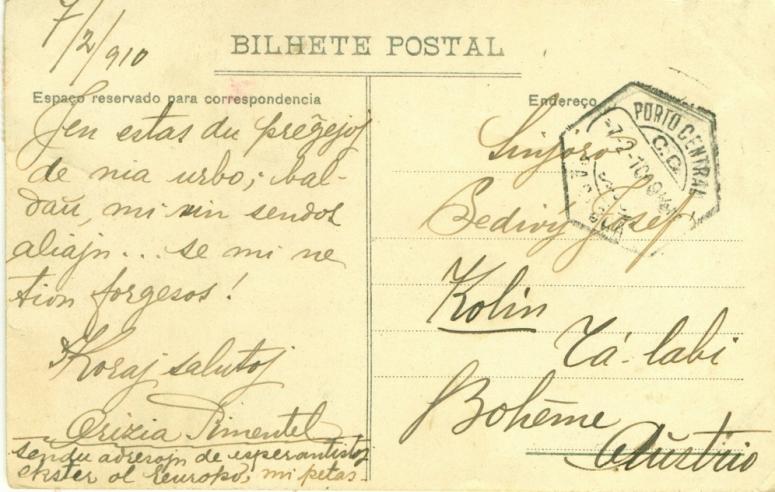 7/2/910
BILHETE POSTAL
Espaço reservado para correspondencia
Jen estas du preĝejoj
de nia urbo; bal-
daŭ, mi vin sendos
aliajn... se mi ne
tion forgesos!
Koraj salutoj
Orizia Pimentel
sendu adresojn de esperantistoj
ekster ol Eŭropo, mi petas-
Endereço
PORTO CENTRAL
-7.2-10
Sinjoro
Bedivý Josef
Kolin
Zá-labi
Bohême
Aŭstrio